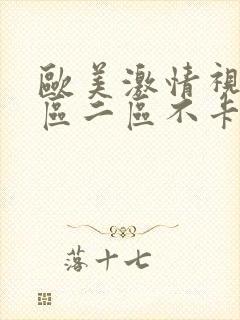 歐美激情視
區二區不卡
落十七